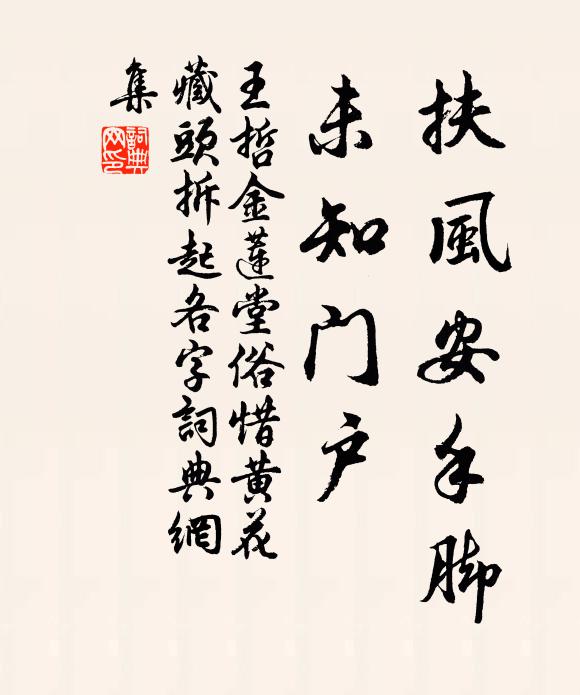 扶風安手脚
未知門户
王哲金蓮堂俗惜黄花
藏頭拆起各字詞典網
集
詞典网印